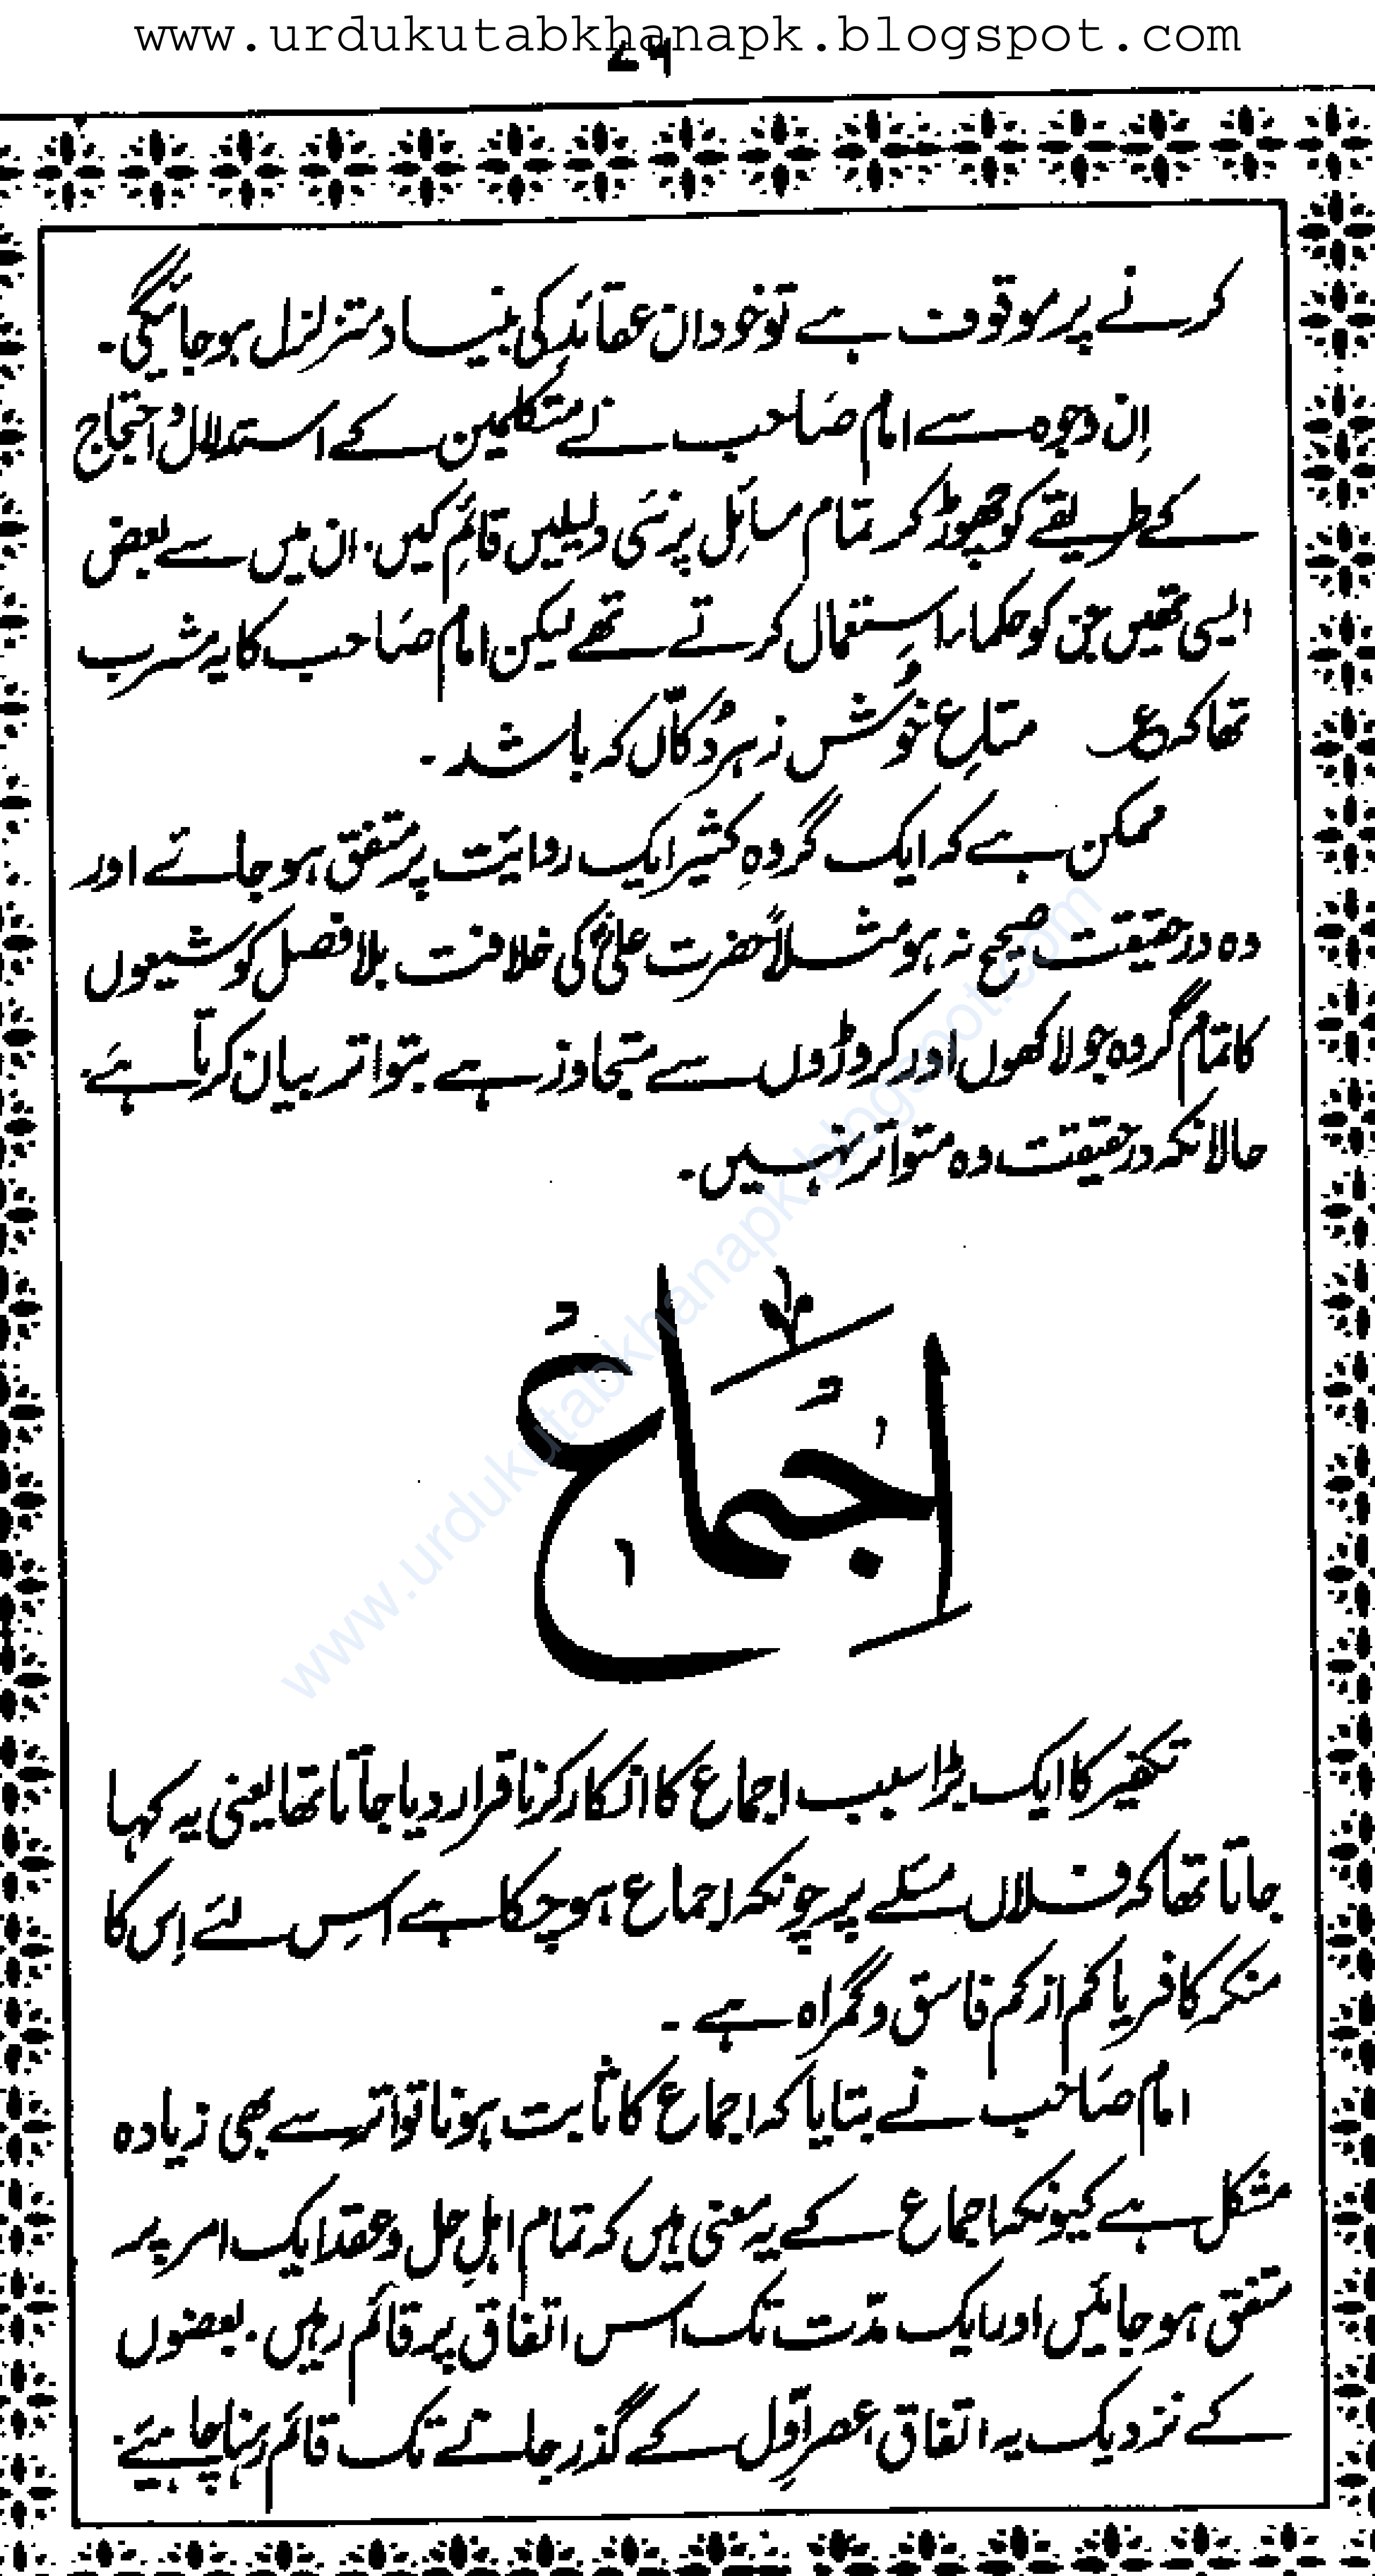 www.urdukutabkhanapk.blogspot.com
۷۶
کرنے پر موقوف ہے تو خود ان عقائد کی بنیاد متزلزل ہو جائیگی۔
اِن وجوہ سے امام صاحب نے متکلمین کے استدلال و احتجاج
کے طریقے کو چھوڑ کر تمام مسائل پر نئی دلیلیں قائم کیں۔ ان میں سے بعض
ایسی تھیں جن کو حکماء استعمال کرتے تھے لیکن امام صاحب کا یہ مشرب
تھا کہ ع متاعِ خوش ز ہر دُکاں کہ باشد۔
ممکن ہے کہ ایک گروہِ کثیر ایک روایت پر متفق ہو جائے اور
وہ درحقیقت صحیح نہ ہو مثلاً حضرت علیؓ کی خلافت بلافصل کو شیعوں
کا تمام گروہ جو لاکھوں اور کروڑوں سے متجاوز ہے بتواتر بیان کرتا ہے۔
حالانکہ درحقیقت وہ متواتر نہیں۔
اِجماع
تکفیر کا ایک بڑا سبب اجماع کا انکار کرنا قرار دیا جاتا تھا یعنی یہ کہا
جاتا تھا کہ فلاں مسئلے پر چونکہ اجماع ہو چکا ہے اس لئے اِس کا
منکر کافر یا کم از کم فاسق و گمراہ ہے۔
امام صاحب نے بتایا کہ اجماع کا ثابت ہونا تواتر سے بھی زیادہ
مشکل ہے کیونکہ اجماع کے یہ معنی ہیں کہ تمام اہلِ حل و عقد ایک امر پر
متفق ہو جائیں اور ایک مدّت تک اس اتفاق پر قائم رہیں۔ بعضوں
کے نزدیک یہ اتفاق عصرِ اوّل کے گذر جانے تک قائم رہنا چاہیئے۔
www.urdukutabkhanapk.blogspot.com